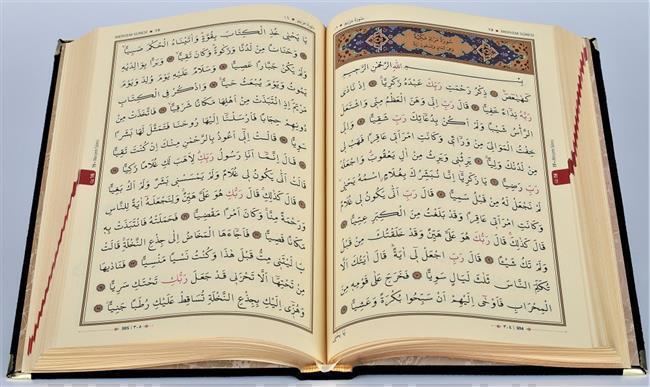 MERYEM SURESİ
بِسْمِ اللّٰهِ الرَّحْمٰنِ الرَّحِيمِ
كٓهٰيٰعٓصٓ ذِكْرُ رَحْمَتِ رَبِّكَ عَبْدَهُ زَكَرِيَّا اِذْ نَادٰى
رَبَّهُ نِدَٓاءً خَفِيًّا قَالَ رَبِّ اِنّٖى وَهَنَ الْعَظْمُ مِنّٖى وَاشْتَعَلَ
الرَّاْسُ شَيْبًا وَلَمْ اَكُنْ بِدُعَٓائِكَ رَبِّ شَقِيًّا وَاِنّٖى
خِفْتُ الْمَوَالِىَ مِنْ وَرَٓائٖى وَكَانَتِ امْرَاَتٖى عَاقِرًا فَهَبْ لٖى
مِنْ لَدُنْكَ وَلِيًّا يَرِثُنٖى وَيَرِثُ مِنْ اٰلِ يَعْقُوبَ وَاجْعَلْهُ
رَبِّ رَضِيًّا يَا زَكَرِيَّٓا اِنَّا نُبَشِّرُكَ بِغُلَامٍ اسْمُهُ يَحْيٰى
لَمْ نَجْعَلْ لَهُ مِنْ قَبْلُ سَمِيًّا قَالَ رَبِّ اَنّٰى يَكُونُ لٖى غُلَامٌ
وَكَانَتِ امْرَاَتٖى عَاقِرًا وَقَدْ بَلَغْتُ مِنَ الْكِبَرِ عِتِيًّا
قَالَ كَذٰلِكَ قَالَ رَبُّكَ هُوَ عَلَىَّ هَيِّنٌ وَقَدْ خَلَقْتُكَ مِنْ قَبْلُ
وَلَمْ تَكُ شَيْـًٔا قَالَ رَبِّ اجْعَلْ لٖٓى اٰيَةً قَالَ اٰيَتُكَ اَلَّا
تُكَلِّمَ النَّاسَ ثَلٰثَ لَيَالٍ سَوِيًّا فَخَرَجَ عَلٰى قَوْمِهٖ مِنَ
الْمِحْرَابِ فَاَوْحٰٓى اِلَيْهِمْ اَنْ سَبِّحُوا بُكْرَةً وَعَشِيًّا
MERYEM SURESİ
يَا يَحْيٰى خُذِ الْكِتَابَ بِقُوَّةٍ وَاٰتَيْنَاهُ الْحُكْمَ صَبِيًّا
وَحَنَانًا مِنْ لَدُنَّا وَزَكٰوةً وَكَانَ تَقِيًّا وَبَرًّا بِوَالِدَيْهِ
وَلَمْ يَكُنْ جَبَّارًا عَصِيًّا وَسَلَامٌ عَلَيْهِ يَوْمَ وُلِدَ وَيَوْمَ
يَمُوتُ وَيَوْمَ يُبْعَثُ حَيًّا وَاذْكُرْ فِى الْكِتَابِ
مَرْيَمَ اِذِ انْتَبَذَتْ مِنْ اَهْلِهَا مَكَانًا شَرْقِيًّا فَاتَّخَذَتْ مِنْ
دُونِهِمْ حِجَابًا فَاَرْسَلْنَٓا اِلَيْهَا رُوحَنَا فَتَمَثَّلَ لَهَا بَشَرًا
سَوِيًّا قَالَتْ اِنّٖٓى اَعُوذُ بِالرَّحْمٰنِ مِنْكَ اِنْ كُنْتَ تَقِيًّا
قَالَ اِنَّمَٓا اَنَا رَسُولُ رَبِّكِ لِاَهَبَ لَكِ غُلَامًا زَكِيًّا
قَالَتْ اَنّٰى يَكُونُ لٖى غُلَامٌ وَلَمْ يَمْسَسْنٖى بَشَرٌ وَلَمْ اَكُ بَغِيًّا
قَالَ كَذٰلِكِ قَالَ رَبُّكِ هُوَ عَلَىَّ هَيِّنٌ وَلِنَجْعَلَهُٓ اٰيَةً لِلنَّاسِ
وَرَحْمَةً مِنَّا وَكَانَ اَمْرًا مَقْضِيًّا فَحَمَلَتْهُ فَانْتَبَذَتْ بِهٖ
مَكَانًا قَصِيًّا فَاَجَٓاءَهَا الْمَخَاضُ اِلٰى جِذْعِ النَّخْلَةِ قَالَتْ
يَا لَيْتَنٖى مِتُّ قَبْلَ هٰذَا وَكُنْتُ نَسْيًا مَنْسِيًّا فَنَادٰيهَا
مِنْ تَحْتِهَٓا اَلَّا تَحْزَنٖى قَدْ جَعَلَ رَبُّكِ تَحْتَكِ سَرِيًّا
وَهُزّٖٓى اِلَيْكِ بِجِذْعِ النَّخْلَةِ تُسَاقِطْ عَلَيْكِ رُطَبًا جَنِيًّا